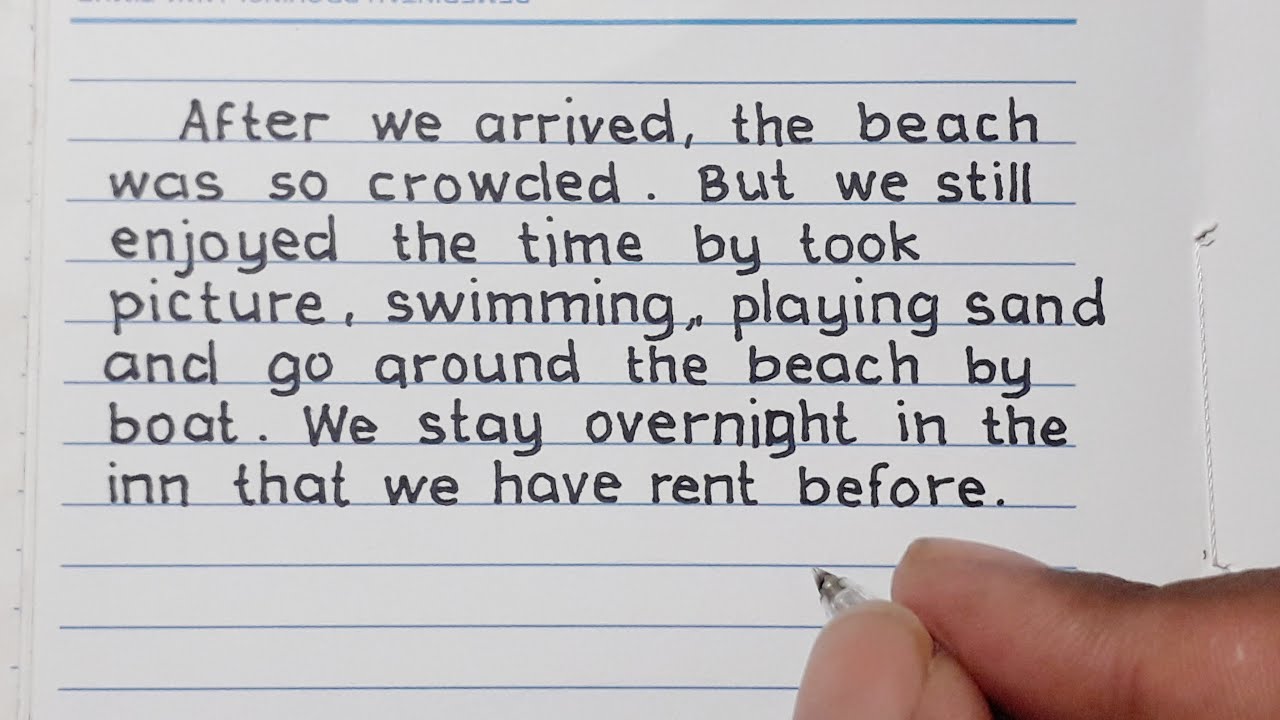 After we arrived, the beach
was so crowded. But we still
enjoyed the time by took
picture, swimming,, playing sand
and go around the beach by
boat. We stay overnight in the
inn that we have rent before.